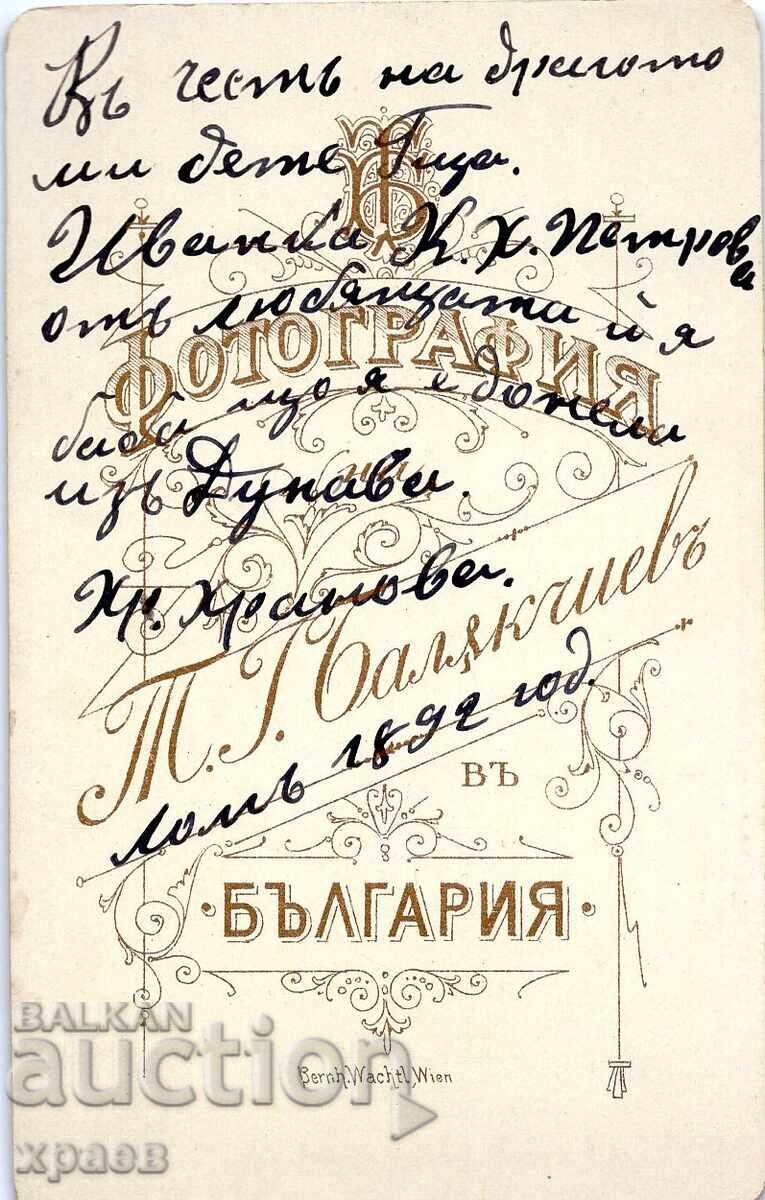 Въ честь на драгото
ми дете Гица.
Иванка К. Х. Петрова
отъ любящата ѝ я
баба що я е донела
изъ Дунава.
Хр.
Ломъ 1892 год.
ФОТОГРАФИЯ
на
Т. Г. Балѫкчиевъ
ВЪ
БЪЛГАРИЯ
Bernh. Wachtl, Wien
BALKAN
auction
храев